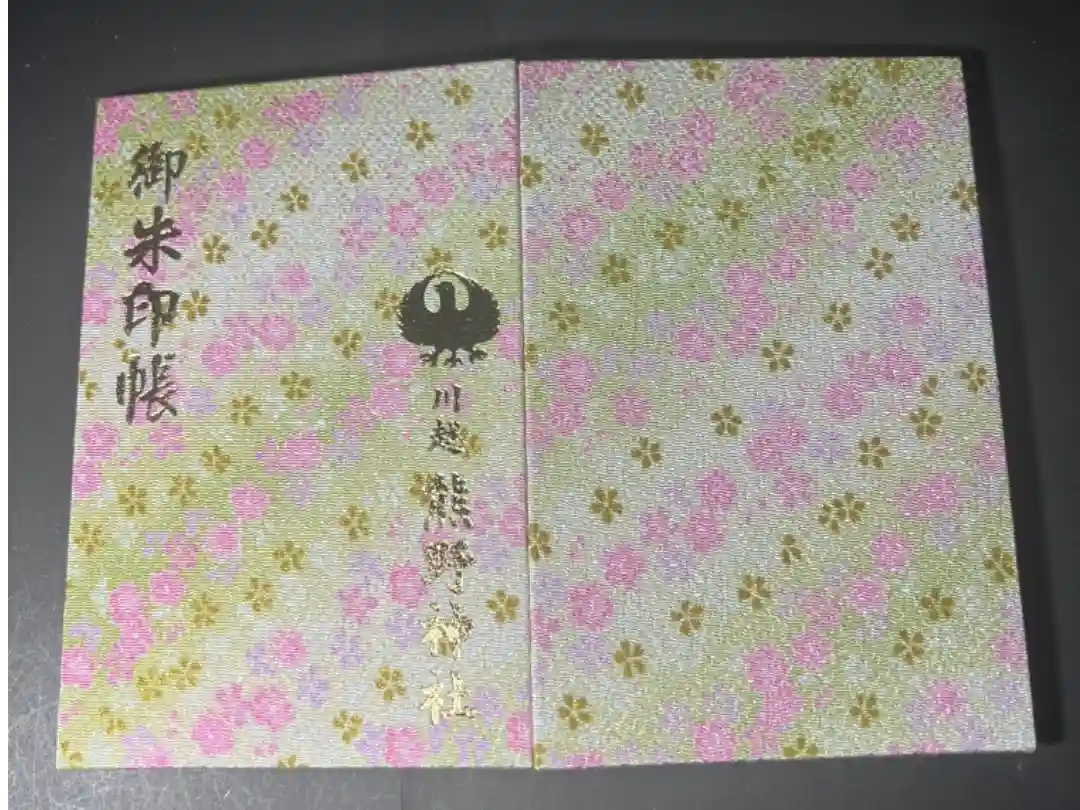 御朱印帳
川越
熊野神社